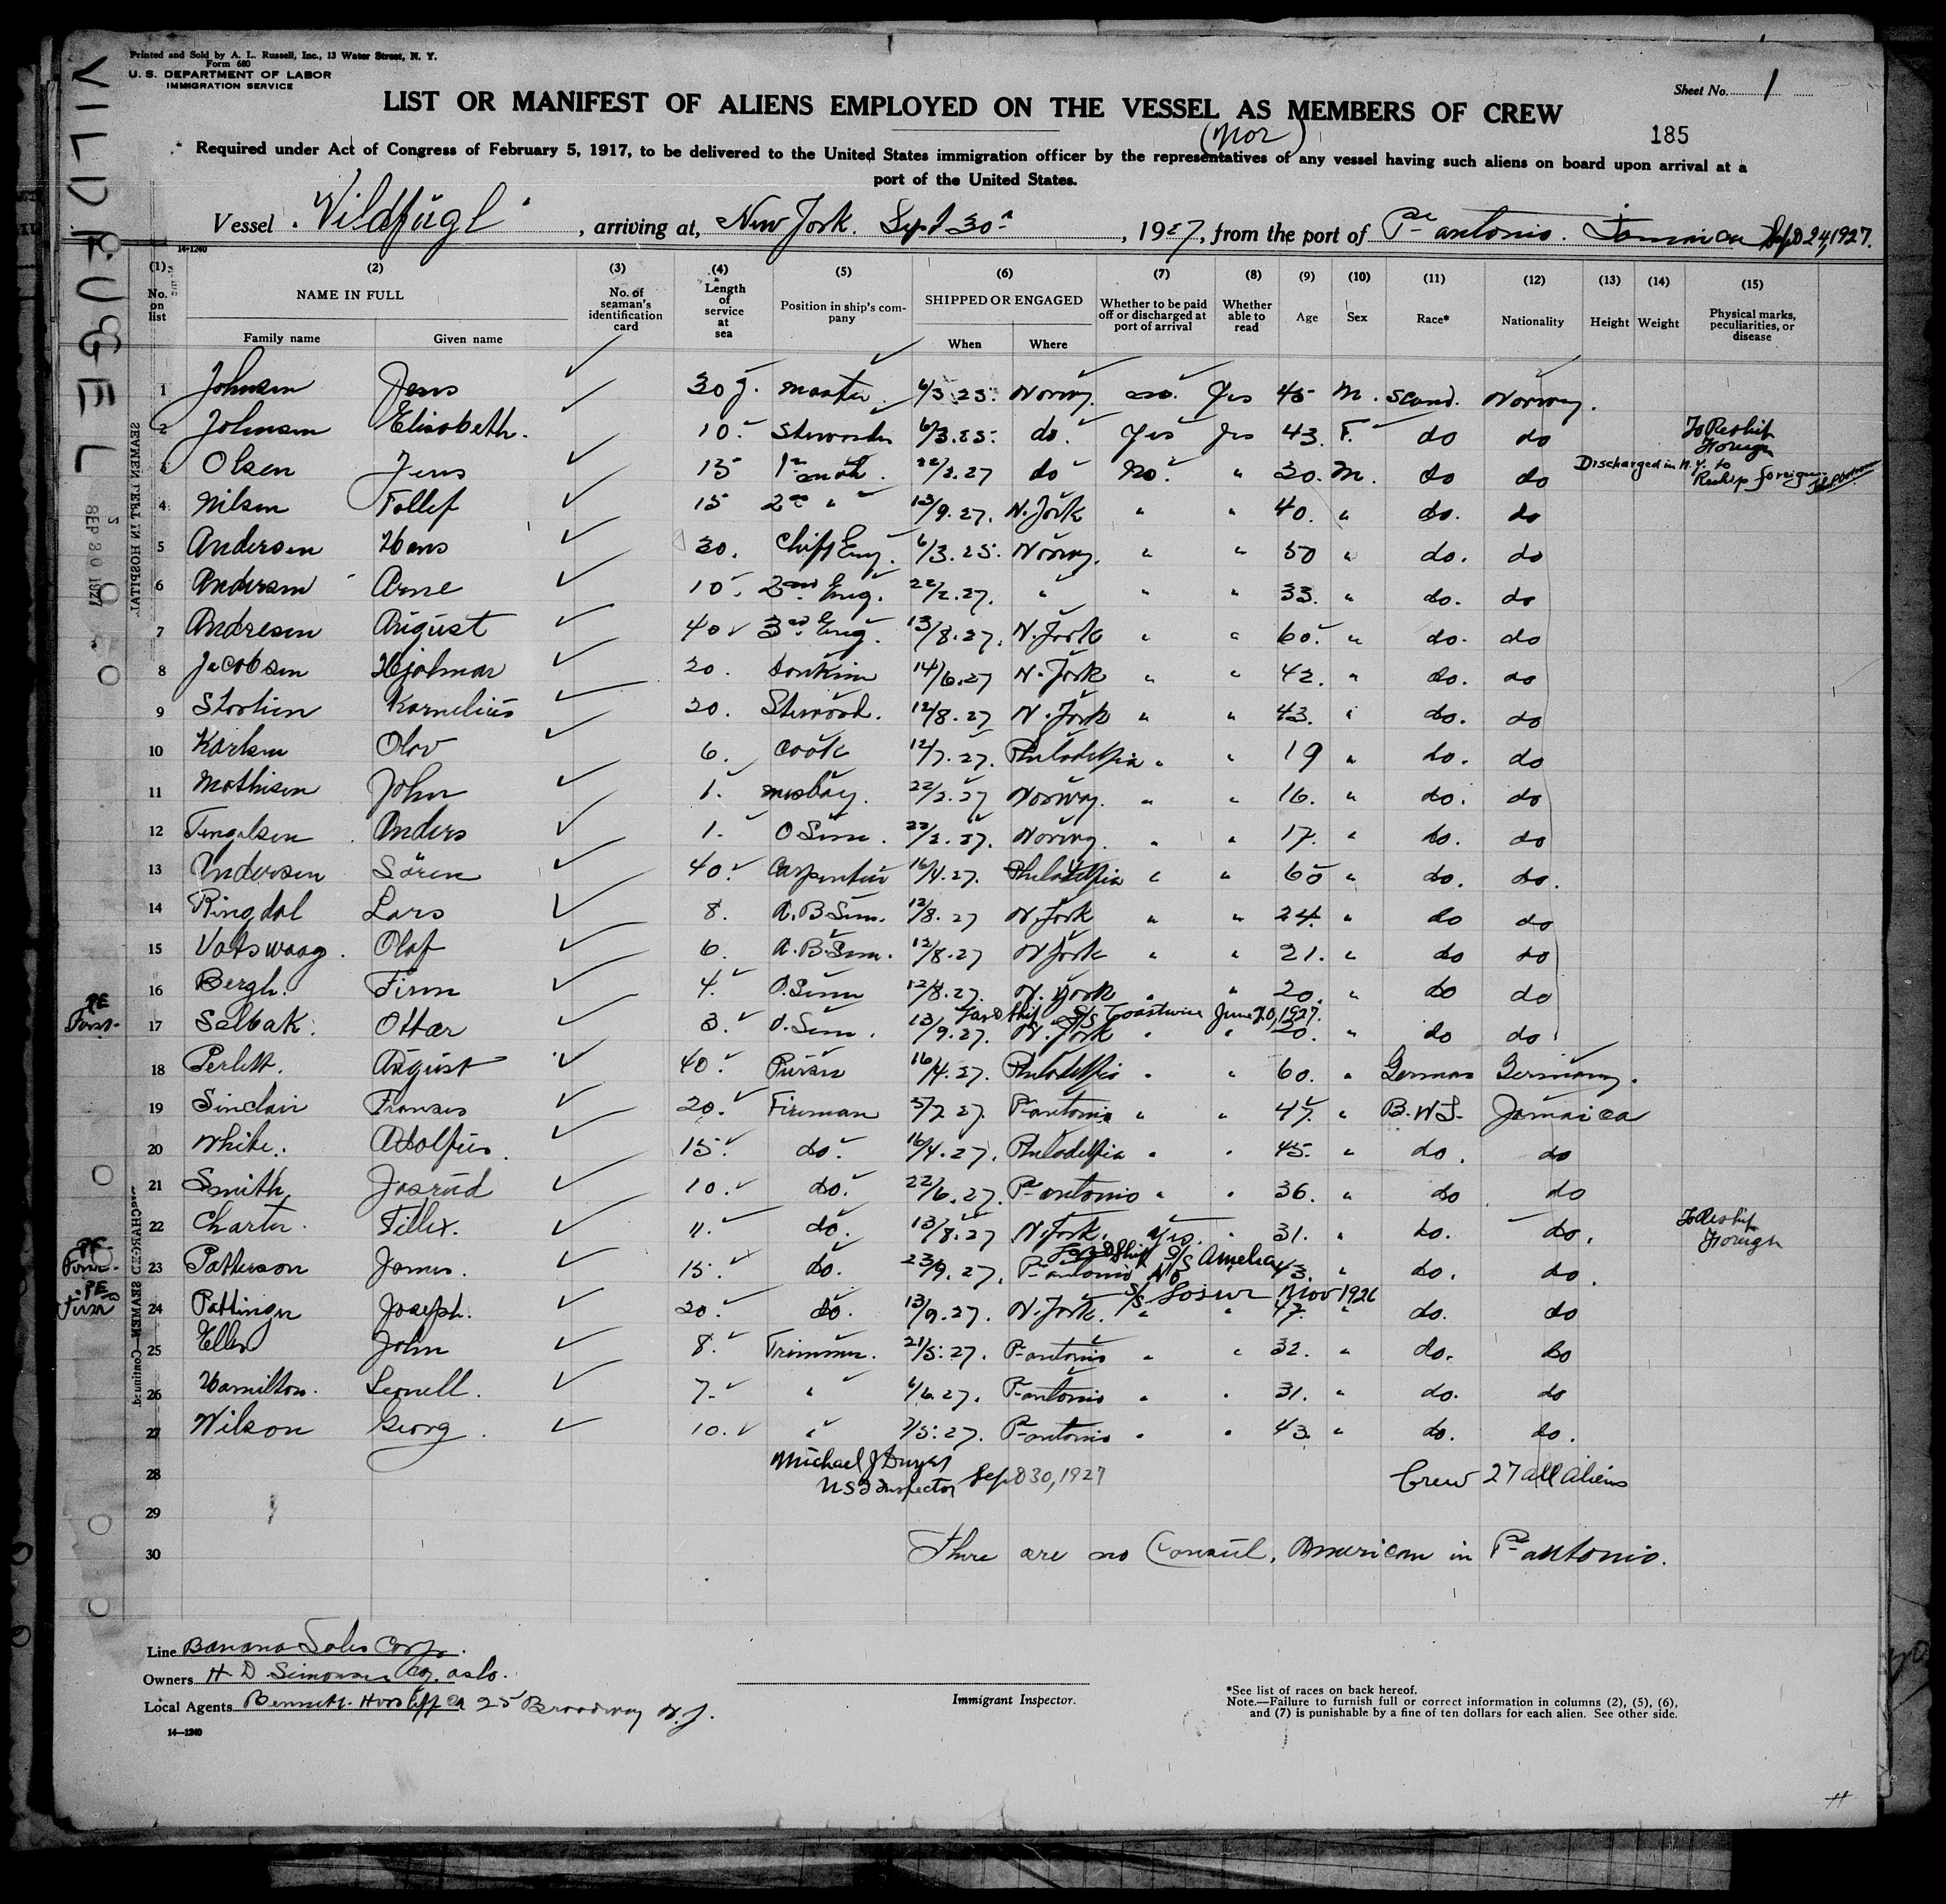 Printed and Sold by A. L. Russell, Inc., 13 Water Street, N. Y.
Form 680
U. S. DEPARTMENT OF LABOR
IMMIGRATION SERVICE
Sheet No. 1
LIST OR MANIFEST OF ALIENS EMPLOYED ON THE VESSEL AS MEMBERS OF CREW
(Nor)
185
Required under Act of Congress of February 5, 1917, to be delivered to the United States immigration officer by the representatives of any vessel having such aliens on board upon arrival at a
port of the United States.
Vessel "Vildfugl", arriving at, New York. Sept 30, 1927, from the port of Pt antonio. Jamaica Sept 24, 1927.
14-1240
(1) No. on list (2) NAME IN FULL Family name Given name (3) No. of seaman's identification card (4) Length of service at sea (5) Position in ship's company (6) SHIPPED OR ENGAGED When Where (7) Whether to be paid off or discharged at port of arrival (8) Whether able to read (9) Age (10) Sex (11) Race* (12) Nationality (13) Height (14) Weight (15) Physical marks, peculiarities, or disease
1 Johnsen Jens 30 y. master 6/3 25. Norway. no. Yes 45 M. Scand. Norway.
2 Johnsen Elisabeth. 10. 6/3.25. do. Yes Yes 43. F. do do To Reship Foreign
3 Olsen Jens 15 1st mate. 22/2.27 do No. " 30. M. do do Discharged in N.Y. to Reship foreign
4 Nilsen Tollef 15 2nd " 13/9.27. N. York " " 40. " do. do
5 Andersen Hans 30. Chiff Eng. 6/3.25. Norway. " " 50 " do. do
6 Andersen Arne 10. 2nd Eng. 22/2.27. " " " 33. " do. do
7 Andresen August 40 3rd Eng. 13/8.27. N. York " " 60. " do. do
8 Jacobsen Hjalmar 20. Donkim 14/6.27 N. York " " 42. " do. do
9 Kornelius 20. Steward. 12/8.27 N. York " " 43. " do. do
10 Karlsen Olav 6. Cook 12/7.27. Philadelfia " " 19 " do. do
11 Mathisen John 1. mesboy. 22/2.27 Norway. " " 16. " do. do
12 Anders 1. O Sem. 22/2.27. Norway. " " 17. " do. do
13 Andersen Sören 40. Carpenter 16/4.27. Philadelfia " " 60 " do. do.
14 Ringdal Lars 8. A.B Sem. 12/8.27 N. York " " 24. " do do
15 Olaf 6. A.B. Sem. 12/8.27 N York " " 21. " do do
16 Bergh. Finn 4. O. Sem 12/8.27. N. York " " 20. " do do
17 Selbak. Ottar 3. O. Sem. 13/9.27. N. York " " 20. " do do
S/S Coastwise June 20, 1927.
18 Perlett. August 40. 16/4.27. Philadelfia " " 60. " German Germany.
19 Sinclair Franses 20. Fireman 5/7 27. Pt antonio " " 47. " B.W.I. Jamaica
20 White. Adolfus. 15. do. 16/4.27. Philadelfia " " 45. " do. do
21 Smith Josrud 10. do. 22/6.27. Pt antonio " " 36. " do do
22 Charter. Fillix. 11. do. 13/8.27 N. York. Yes. " 31. " do. do. To Reship Foreign
23 Patterson James. 15. do. 23/9.27. Pt antonio No " 43. " do. do.
S/S Amelia
24 Pattinger Joseph. 20. do. 13/9.27. N. York. " " 47. " do. do
S/S Nov 1926
25 Ellis John 8. Trimmer. 21/5.27. Pt antonio " " 32. " do. do
26 Hamilton. Leonell. 7. " 6/6.27. Pt antonio " " 31. " do. do
27 Wilson Georg. 10. " 7/5.27. Pt antonio " " 43. " do. do.
28 Michael J Dwyer
US I Inspector Sept 30, 1927 Crew 27 all Aliens
29
30 There are no Consul, American in Pt antonio.
Line Banana Sales Corp.
Owners H. D. Simonsen Co. Oslo.
Local Agents 25 Broadway N.Y.
14-1240
Immigrant Inspector.
*See list of races on back hereof.
Note.—Failure to furnish full or correct information in columns (2), (5), (6),
and (7) is punishable by a fine of ten dollars for each alien. See other side.
VILDFUGEL
SEP 30 1927
SEAMEN LEFT IN HOSPITAL
DISCHARGED SEAMEN—Continued